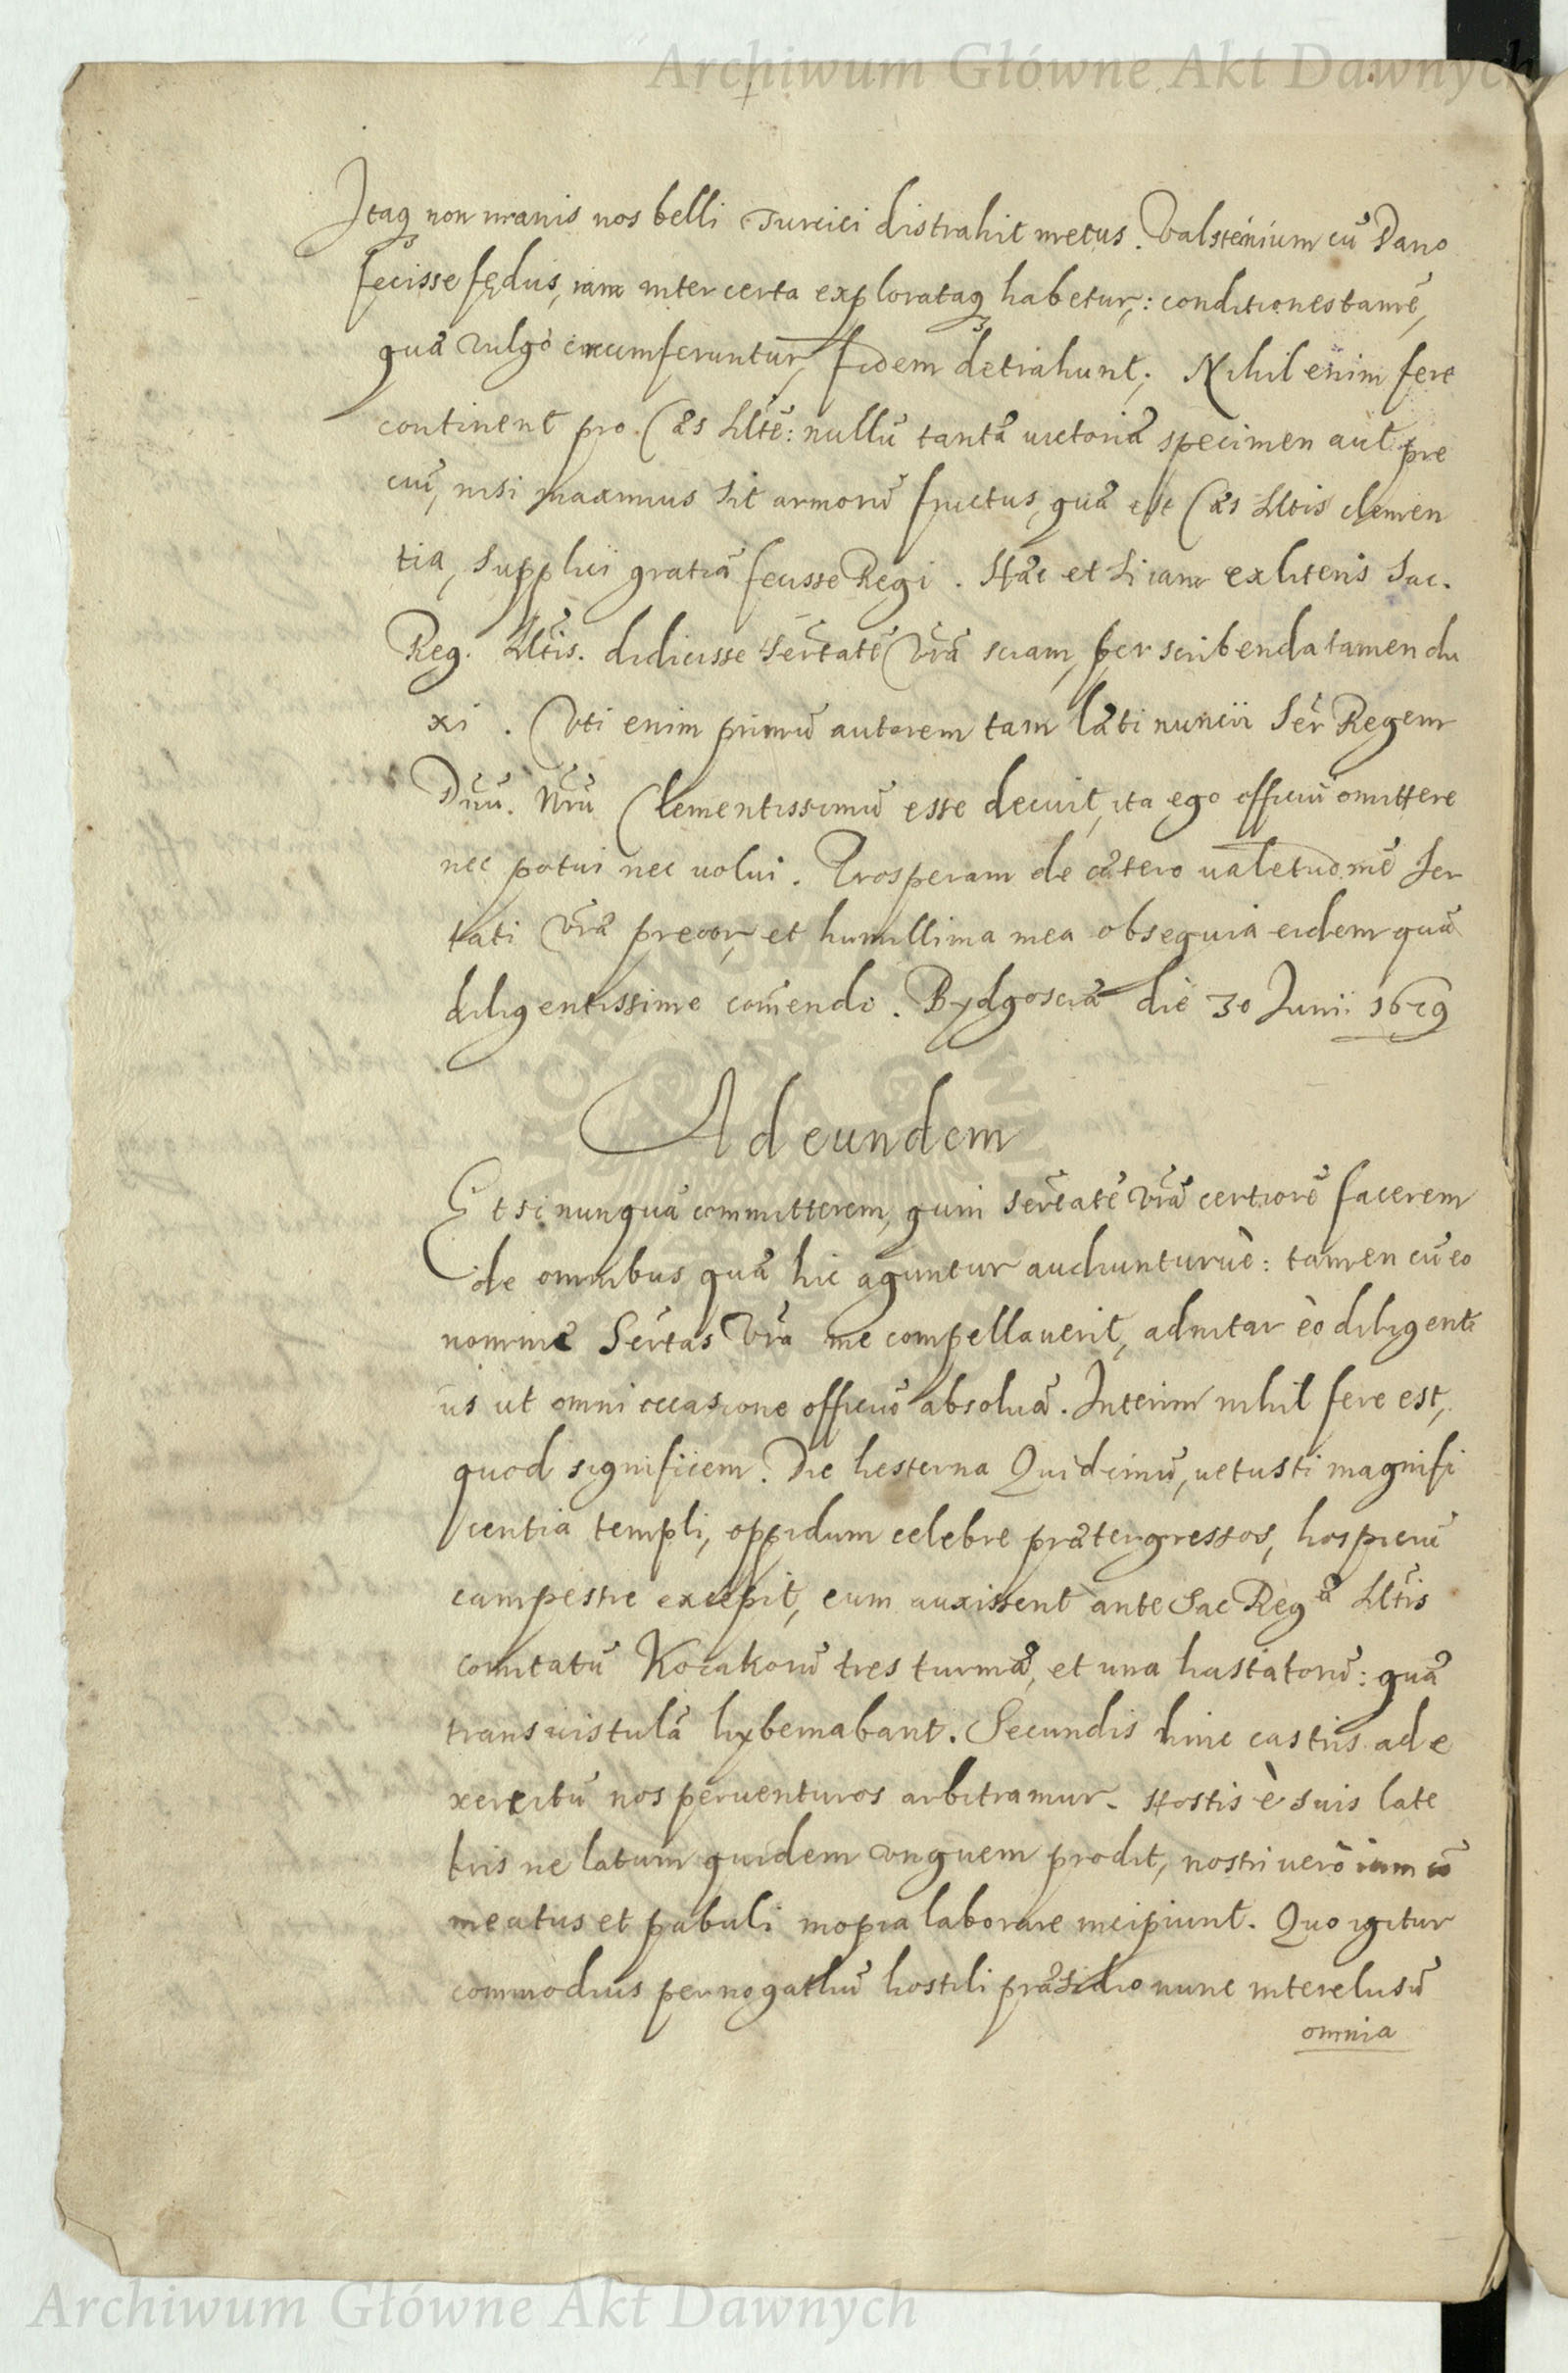 Archiwum Główne Akt Dawnych
Itaq; non inanis nos belli Turcici distrahit metus. Valsteinium cũ Dano
fecisse fędus, iam inter certa exploratáq; habetur: conditiones tamẽ,
quæ vulgò circumferuntur, fidem detrahunt. Nihil enim fere
continent pro Cæs Mte: nullũ tantæ uictoriæ specimen aut pre
ciũ, nisi maximus sit armorũ fructus, quæ est Cæs Mtis clemen
tia, supplici gratiã fecisse Regi. Hæc etsi iam ex literis Sac.
Reg. Mtis. didicisse Sertatẽ Vrã sciam, perscribenda tamen du
xi. Vti enim primũ autorem tam læti nuncii Ser Regem
Dnũ. Nrũ Clementissimũ esse decuit, ita ego officiũ omittere
nec potui nec uolui. Prosperam de cætero ualetudinẽ Ser
tati Vræ precor, et humillima mea obsequia eidem quã
diligentissime comẽndo. Bydgosciæ die 30 Junii 1629
Ad eundem
Etsi nunquã committerem, quin Sertatẽ Vrã certiorẽ facerem
de omnibus quæ hic aguntur audiunturuè: tamen cũ eo
nomine Sertas Vra me compellauerit, adnitar èo diligenti
ús ut omni occasione officiũ absoluã. Interim nihil fere est,
quod significem. Die hesterna Quidcinũ, uetusti magnifi
centia templi, oppidum celebre prætergressos, hospiciũ
campestre excepit, cum auxissent ante Sac Regæ Mtis
comitatũ Kozakorũ tres turmæ, et una hastatorũ: quæ
trans uistulã hybernabant. Secundis hinc castris ad e
xercitũ nos peruenturos arbitramur. Hostis è suis late
bris ne latum quidem vnguem prodit, nostri uerò iam cõ
meatus et pabuli inopia laborare incipiunt. Quo igitur
commodius per nogathũ hostili præsidio nunc interclusũ
omnia
Archiwum Główne Akt Dawnych